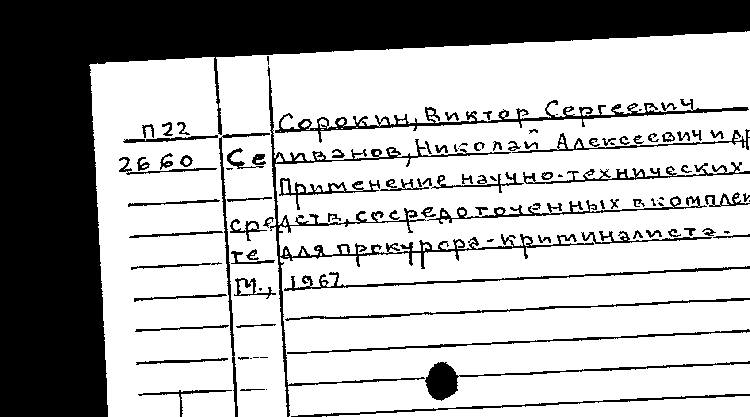 П22 Сорокин, Виктор Сергеевич
2660 Селиванов, Николай Алексеевич и др
Применение научно-технических
средств, сосредоточенных в комплек
те для прокурора-криминалиста.-
М., 1967